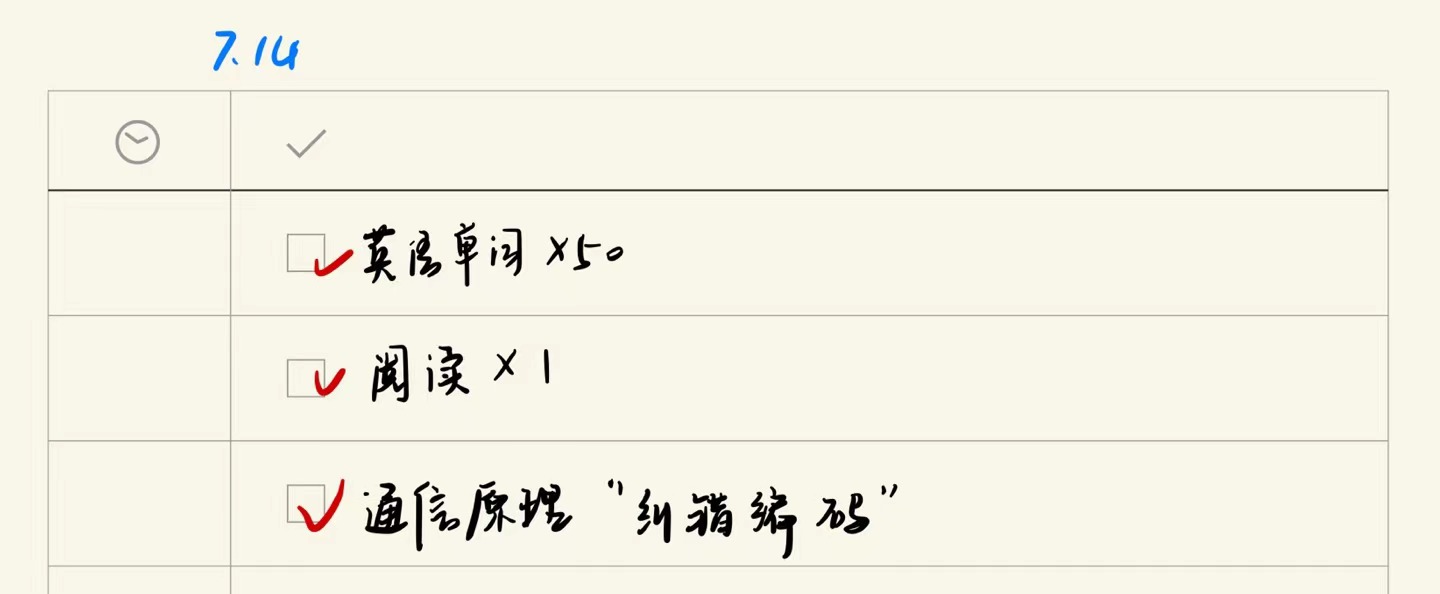 7.14
英语单词 ×50
阅读 ×1
通信原理 "纠错编码"